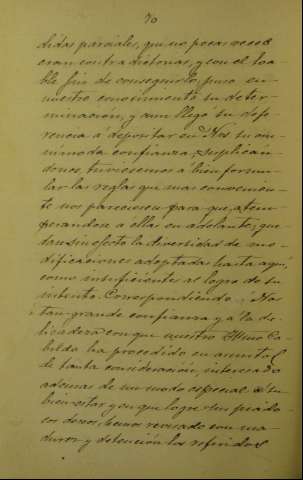 70
didas parciales, que no pocas veces
eran contradictorias, y con el loa-
ble fin de conseguirlo, puso en
nuestro conocimiento su deter-
minacion, y aun llegó su defe-
rencia á depositar en Nos su om-
nímoda confianza, suplicán
donos, tuviesemos á bien formu-
lar las reglas que mas convenien-
te nos pareciesen para que, atem-
perandose á ellas en adelante, que-
dan sin efecto la diversidad de mo-
dificaciones adoptadas hasta aquí,
como insuficientes al logro de su
intento. Correspondiendo Nos
tan grande confianza y á la de-
licadeza con que nuestro Ilmo Ca-
bildo ha procedido en asunto
de tanta consideracion, interesado
ademas de un modo especial á su
bien estar y en que logre sus piado-
sos deseos, hemos revisado con ma-
durez y detencion los referidos